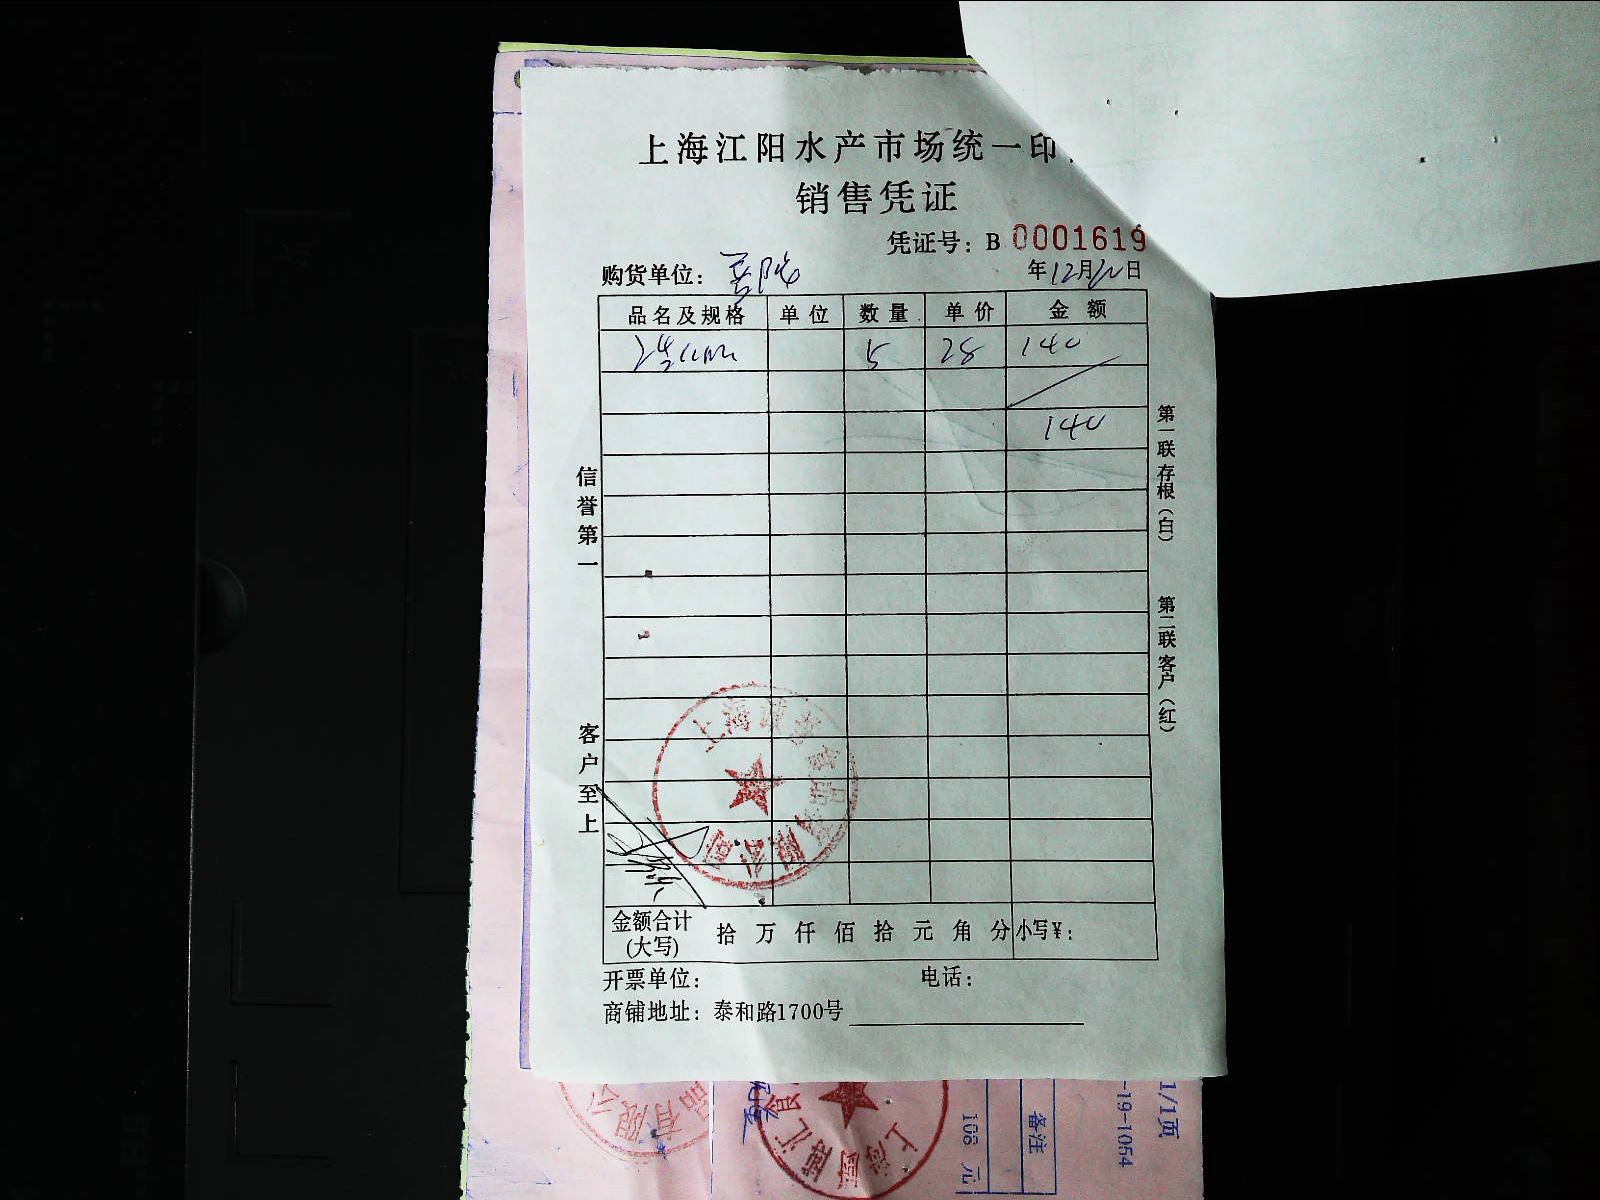 上海江阳水产市场统一印
销售凭证
凭证号：B 0001619
购货单位：
年12月 日
品名及规格 单位 数量 单价 金额
5 28 140
140
信誉第一
客户至上
第一联 存根（白）
第二联 客户（红）
金额合计（大写） 拾 万 仟 佰 拾 元 角 分 小写¥：
开票单位： 电话：
商铺地址：泰和路1700号
品有限公
上海
备注
108 元
-19-1054
1/1页